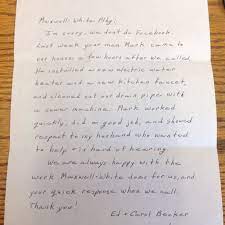 Maxwell-White Plbg:
I'm sorry, we don't do Facebook.
Last week your man Mark came to
our house a few hours after we called.
He installed a new electric water
heater and a new kitchen faucet,
and cleaned out our drain pipes with
a sewer machine. Mark worked
quickly, did a good job, and showed
respect to my husband who wanted
to help + is hard of hearing.
We are always happy with the
work Maxwell-White does for us, and
your quick response when we call.
Thank you!
Ed + Carol Booker